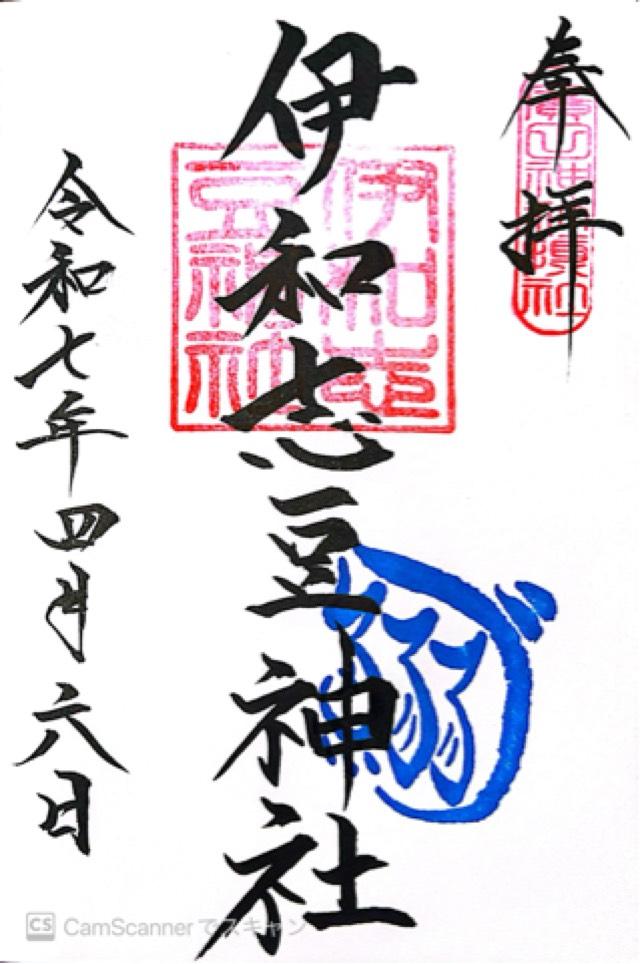 奉拝
伊和志豆神社
伊和志
豆神社
鰯
令和七年四月六日
CS CamScannerでスキャン